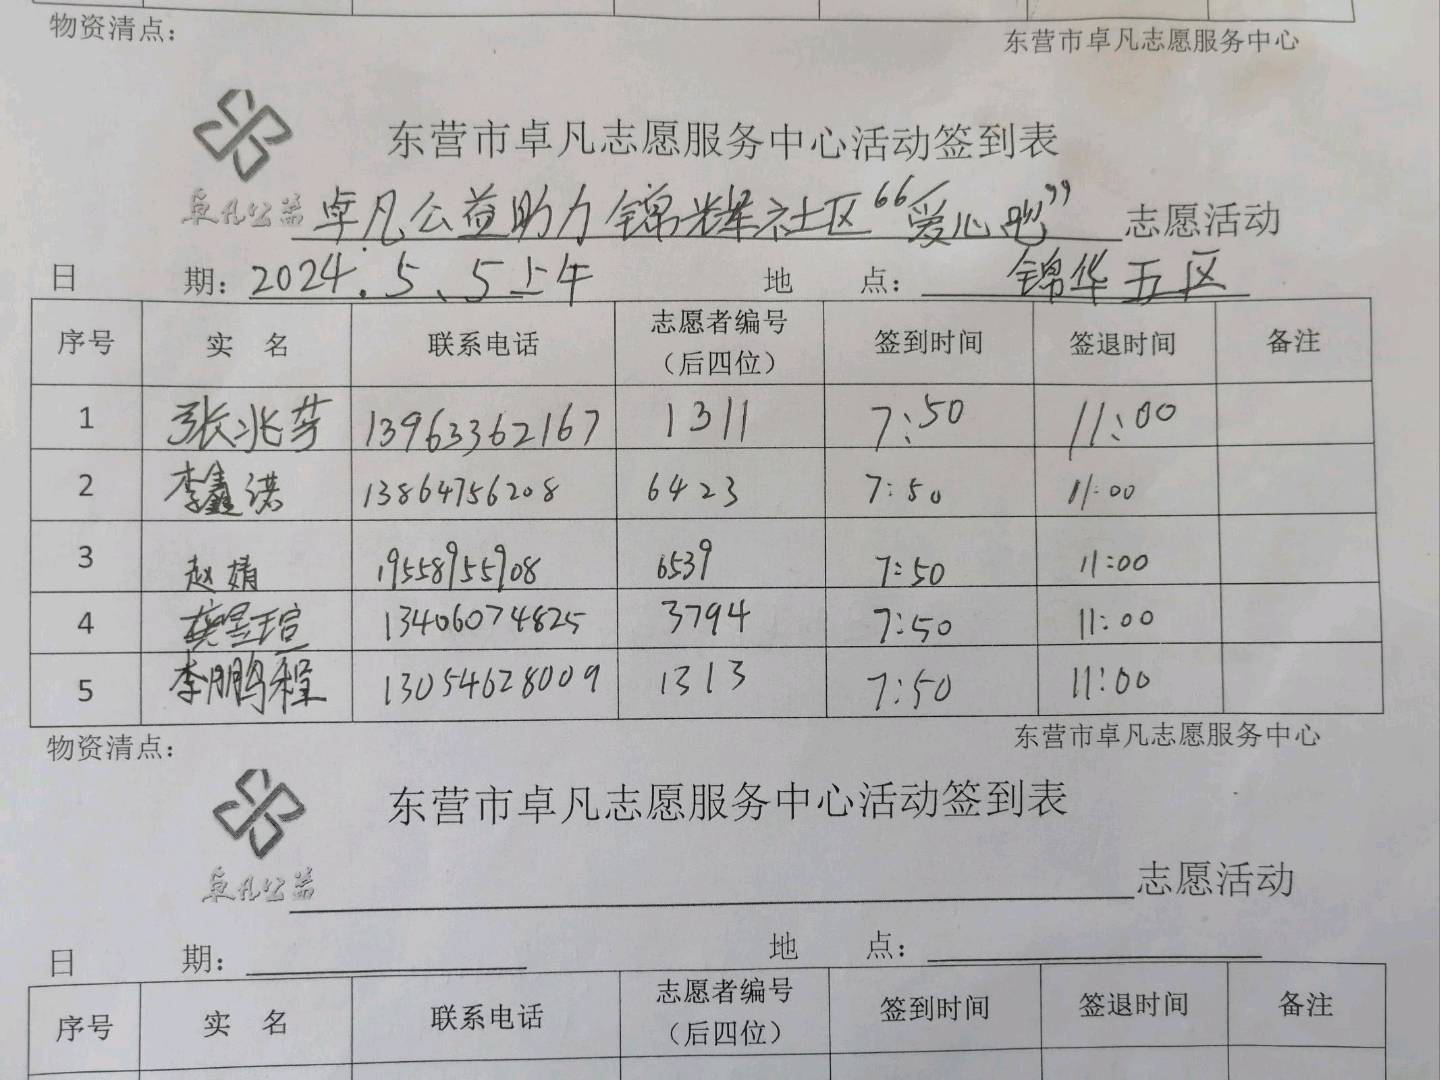 物资清点： 东营市卓凡志愿服务中心
东营市卓凡志愿服务中心活动签到表
卓凡公益 卓凡公益助力锦辉社区“爱心吧” 志愿活动
日 期：2024.5、5上午 地 点：锦华五区
序号 实 名 联系电话 志愿者编号（后四位） 签到时间 签退时间 备注
1 张兆芬 13963362167 1311 7:50 11:00
2 李鑫诺 13864756208 6423 7:50 11:00
3 赵婧 19558955908 6539 7:50 11:00
4 13406074825 3794 7:50 11:00
5 李鹏程 13054628009 1313 7:50 11:00
物资清点： 东营市卓凡志愿服务中心
东营市卓凡志愿服务中心活动签到表
卓凡公益 志愿活动
日 期： 地 点：
序号 实 名 联系电话 志愿者编号（后四位） 签到时间 签退时间 备注